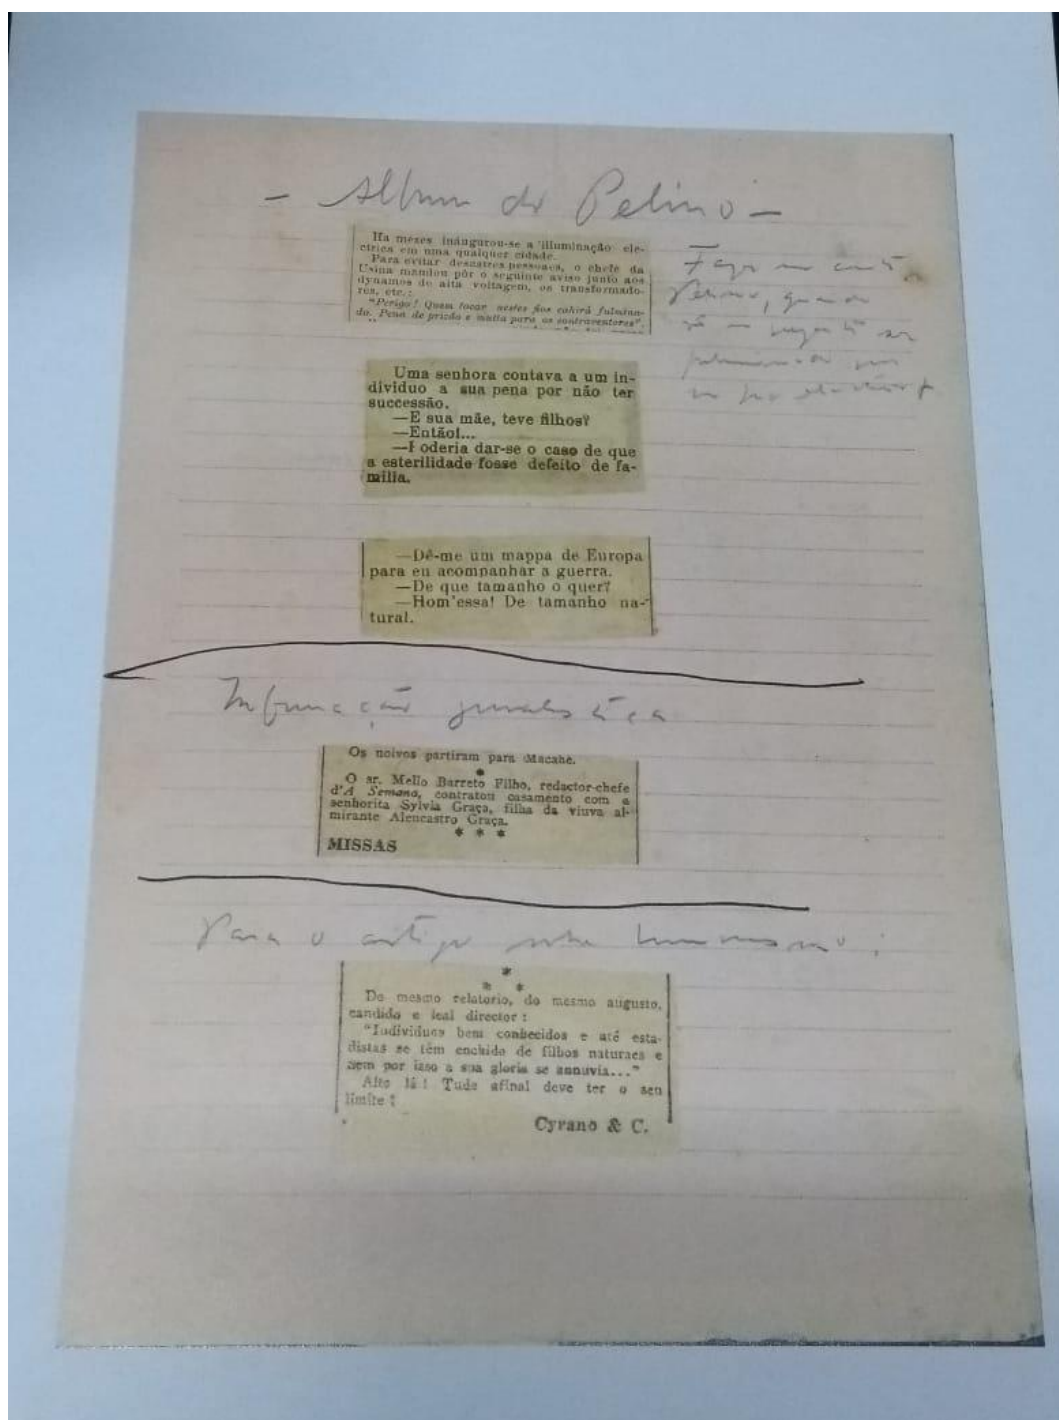 — Album do Pelino —
Ha mezes inaugurou-se a illuminação ele-
ctrica em uma qualquer cidade.
Para evitar desastres pessoaes, o chefe da
Usina mandou pôr o seguinte aviso junto aos
dynamos de alta voltagem, os transformado-
res, etc.:
"Perigo! Quem tocar nestes fios cahirá fulmina-
do. Pena de prisão e multa para os contraventores".
Pelino, quando
Uma senhora contava a um in-
dividuo a sua pena por não ter
successão.
—E sua mãe, teve filhos?
—Então!...
—Poderia dar-se o caso de que
a esterilidade fosse defeito de fa-
milia.
—Dê-me um mappa de Europa
para eu acompanhar a guerra.
—De que tamanho o quer?
—Hom'essa! De tamanho na-
tural.
Informação jornalistica
Os noivos partiram para Macahé.
*
O sr. Mello Barreto Filho, redactor-chefe
d'A Semana, contratou casamento com a
senhorita Sylvia Graça, filha da viuva al-
mirante Alencastro Graça.
* * *
MISSAS
Para o artigo sobre
*
* *
Do mesmo relatorio, do mesmo augusto,
candido e leal director:
"Individuos bem conhecidos e até esta-
distas se têm enchido de filhos naturaes e
nem por isso a sua gloria se annuvia..."
Alto lá! Tudo afinal deve ter o seu
limite!
Cyrano & C.